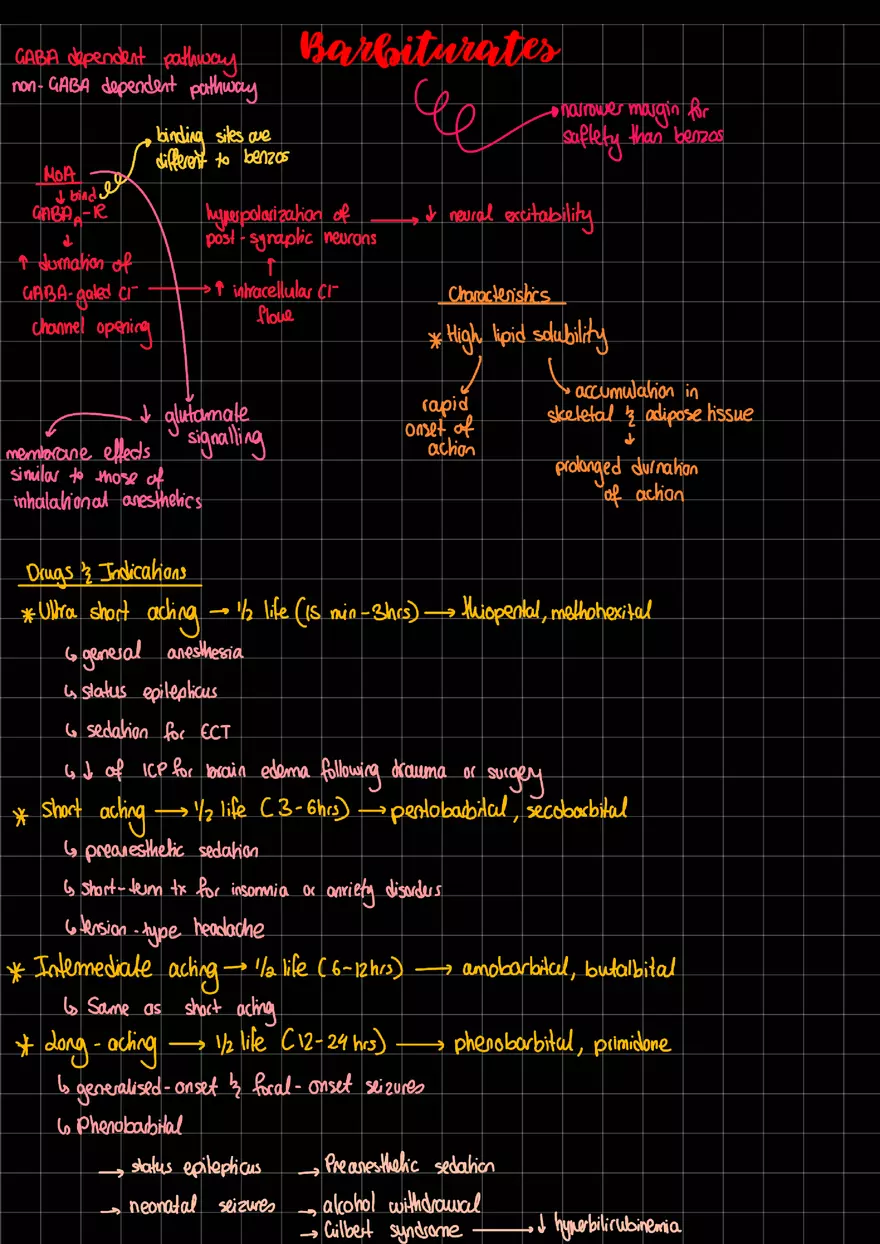 Barbiturates
GABA dependent pathway
non-GABA dependent pathway
narrower margin for
saftety than benzos
binding sites are
different to benzos
MoA
↓ bind
GABA_A-R
↓
↑ durnation of
GABA-gated Cl⁻
channel opening
→ ↑ intracellular Cl⁻
flow
↑
hyperpolarization of
post-synaptic neurons
→ ↓ neural excitability
↓ glutamate
signalling
membrane effects
similar to those of
inhalational anesthetics
Characteristics
* High lipid solubility
rapid
onset of
action
accumulation in
skeletal & adipose tissue
↓
prolonged durnation
of action
Drugs & Indications
* Ultra short acting → 1/2 life (15 min-3hrs) → thiopental, methohexital
↳ general anesthesia
↳ status epilepticus
↳ sedation for ECT
↳ ↓ of ICP for brain edema following trauma or surgery
* Short acting → 1/2 life (3-6hrs) → pentobarbital, secobarbital
↳ preanesthetic sedation
↳ short-term tx for insomnia or anxiety disorders
↳ tension-type headache
* Intermediate acting → 1/2 life (6-12hrs) → amobarbital, butalbital
↳ Same as short acting
* Long-acting → 1/2 life (12-24 hrs) → phenobarbital, primidone
↳ generalised-onset & focal-onset seizures
↳ Phenobarbital
→ status epilepticus → Preanesthetic sedation
→ neonatal seizures → alcohol withdrawal
→ Gilbert syndrome → ↓ hyperbilirubinemia